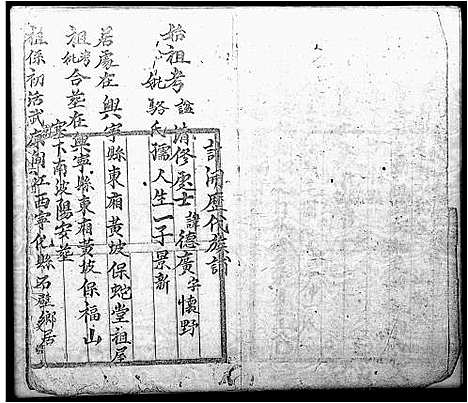 計開歷代族譜
始祖考諡清修處士諱德廣字懷野
妣駱氏孺人生一子景新
居處在興寧縣東廂黃坡保蛇堂祖屋
祖考妣合葬在興寧縣東廂黃坡保福山
寨下南坡陽安葬
祖係初治武原閩江西寧化縣石壁鄉居